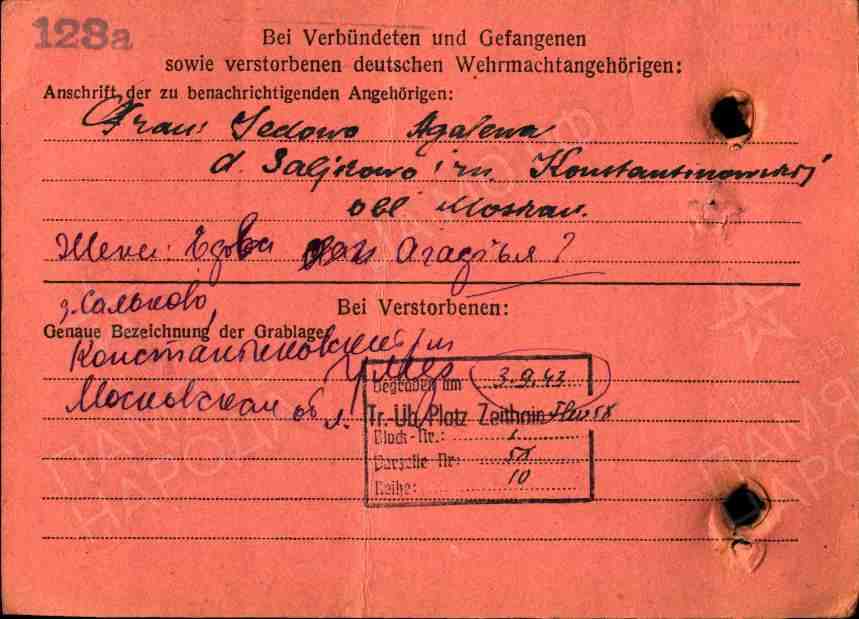 128a
Bei Verbündeten und Gefangenen
sowie verstorbenen deutschen Wehrmachtangehörigen:
Anschrift der zu benachrichtigenden Angehörigen:
Frau: Sedowo Agafewa
d. Saljkowo
obl Moskau.
Жена: Агафья?
д. Сальково,
Bei Verstorbenen:
Genaue Bezeichnung der Grablage:
Константиновский
Московская обл.
умер
Begraben am 3.9.43
Tr.-Üb. Platz Zeithain
Block-Nr.: 1
Parzelle Nr:
Reihe: 10